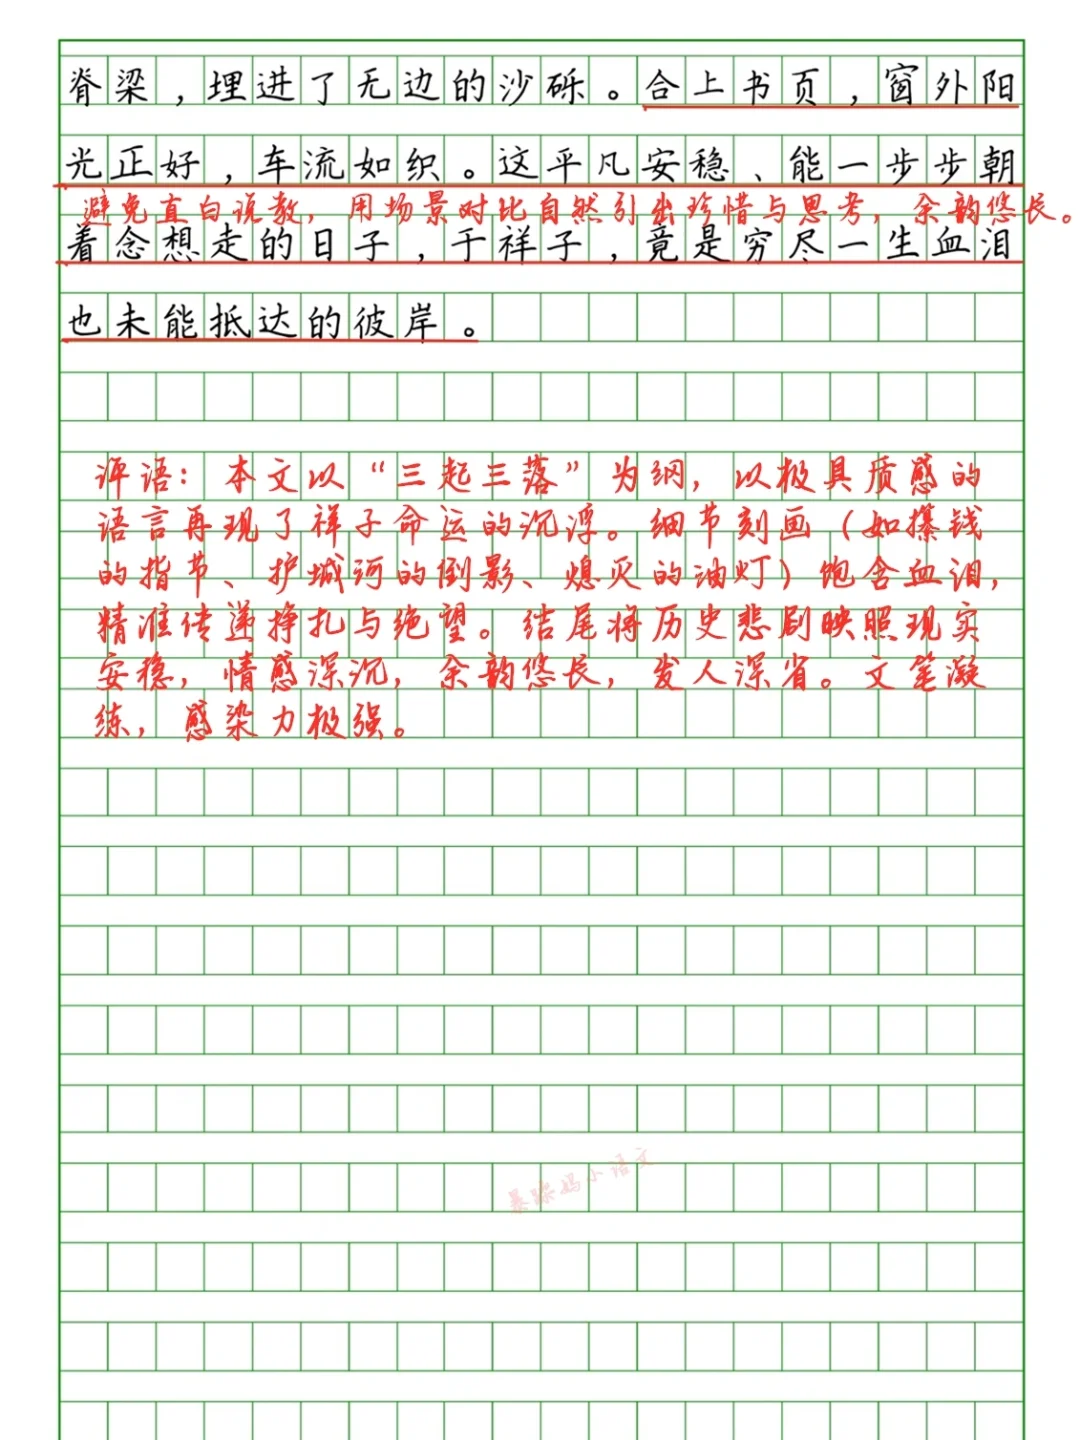 脊梁，埋进了无边的沙砾。合上书页，窗外阳
光正好，车流如织。这平凡安稳、能一步步朝
避免直白说教，用场景对比自然引出珍惜与思考，余韵悠长。
着念想走的日子，于祥子，竟是穷尽一生血泪
也未能抵达的彼岸。
评语：本文以“三起三落”为纲，以极具质感的
语言再现了祥子命运的沉浮。细节刻画（如攥钱
的指节、护城河的倒影、熄灭的油灯）饱含血泪，
精准传递挣扎与绝望。结尾将历史悲剧映照现实
安稳，情感深沉，余韵悠长，发人深省。文笔凝
练，感染力极强。
暴躁妈小语文